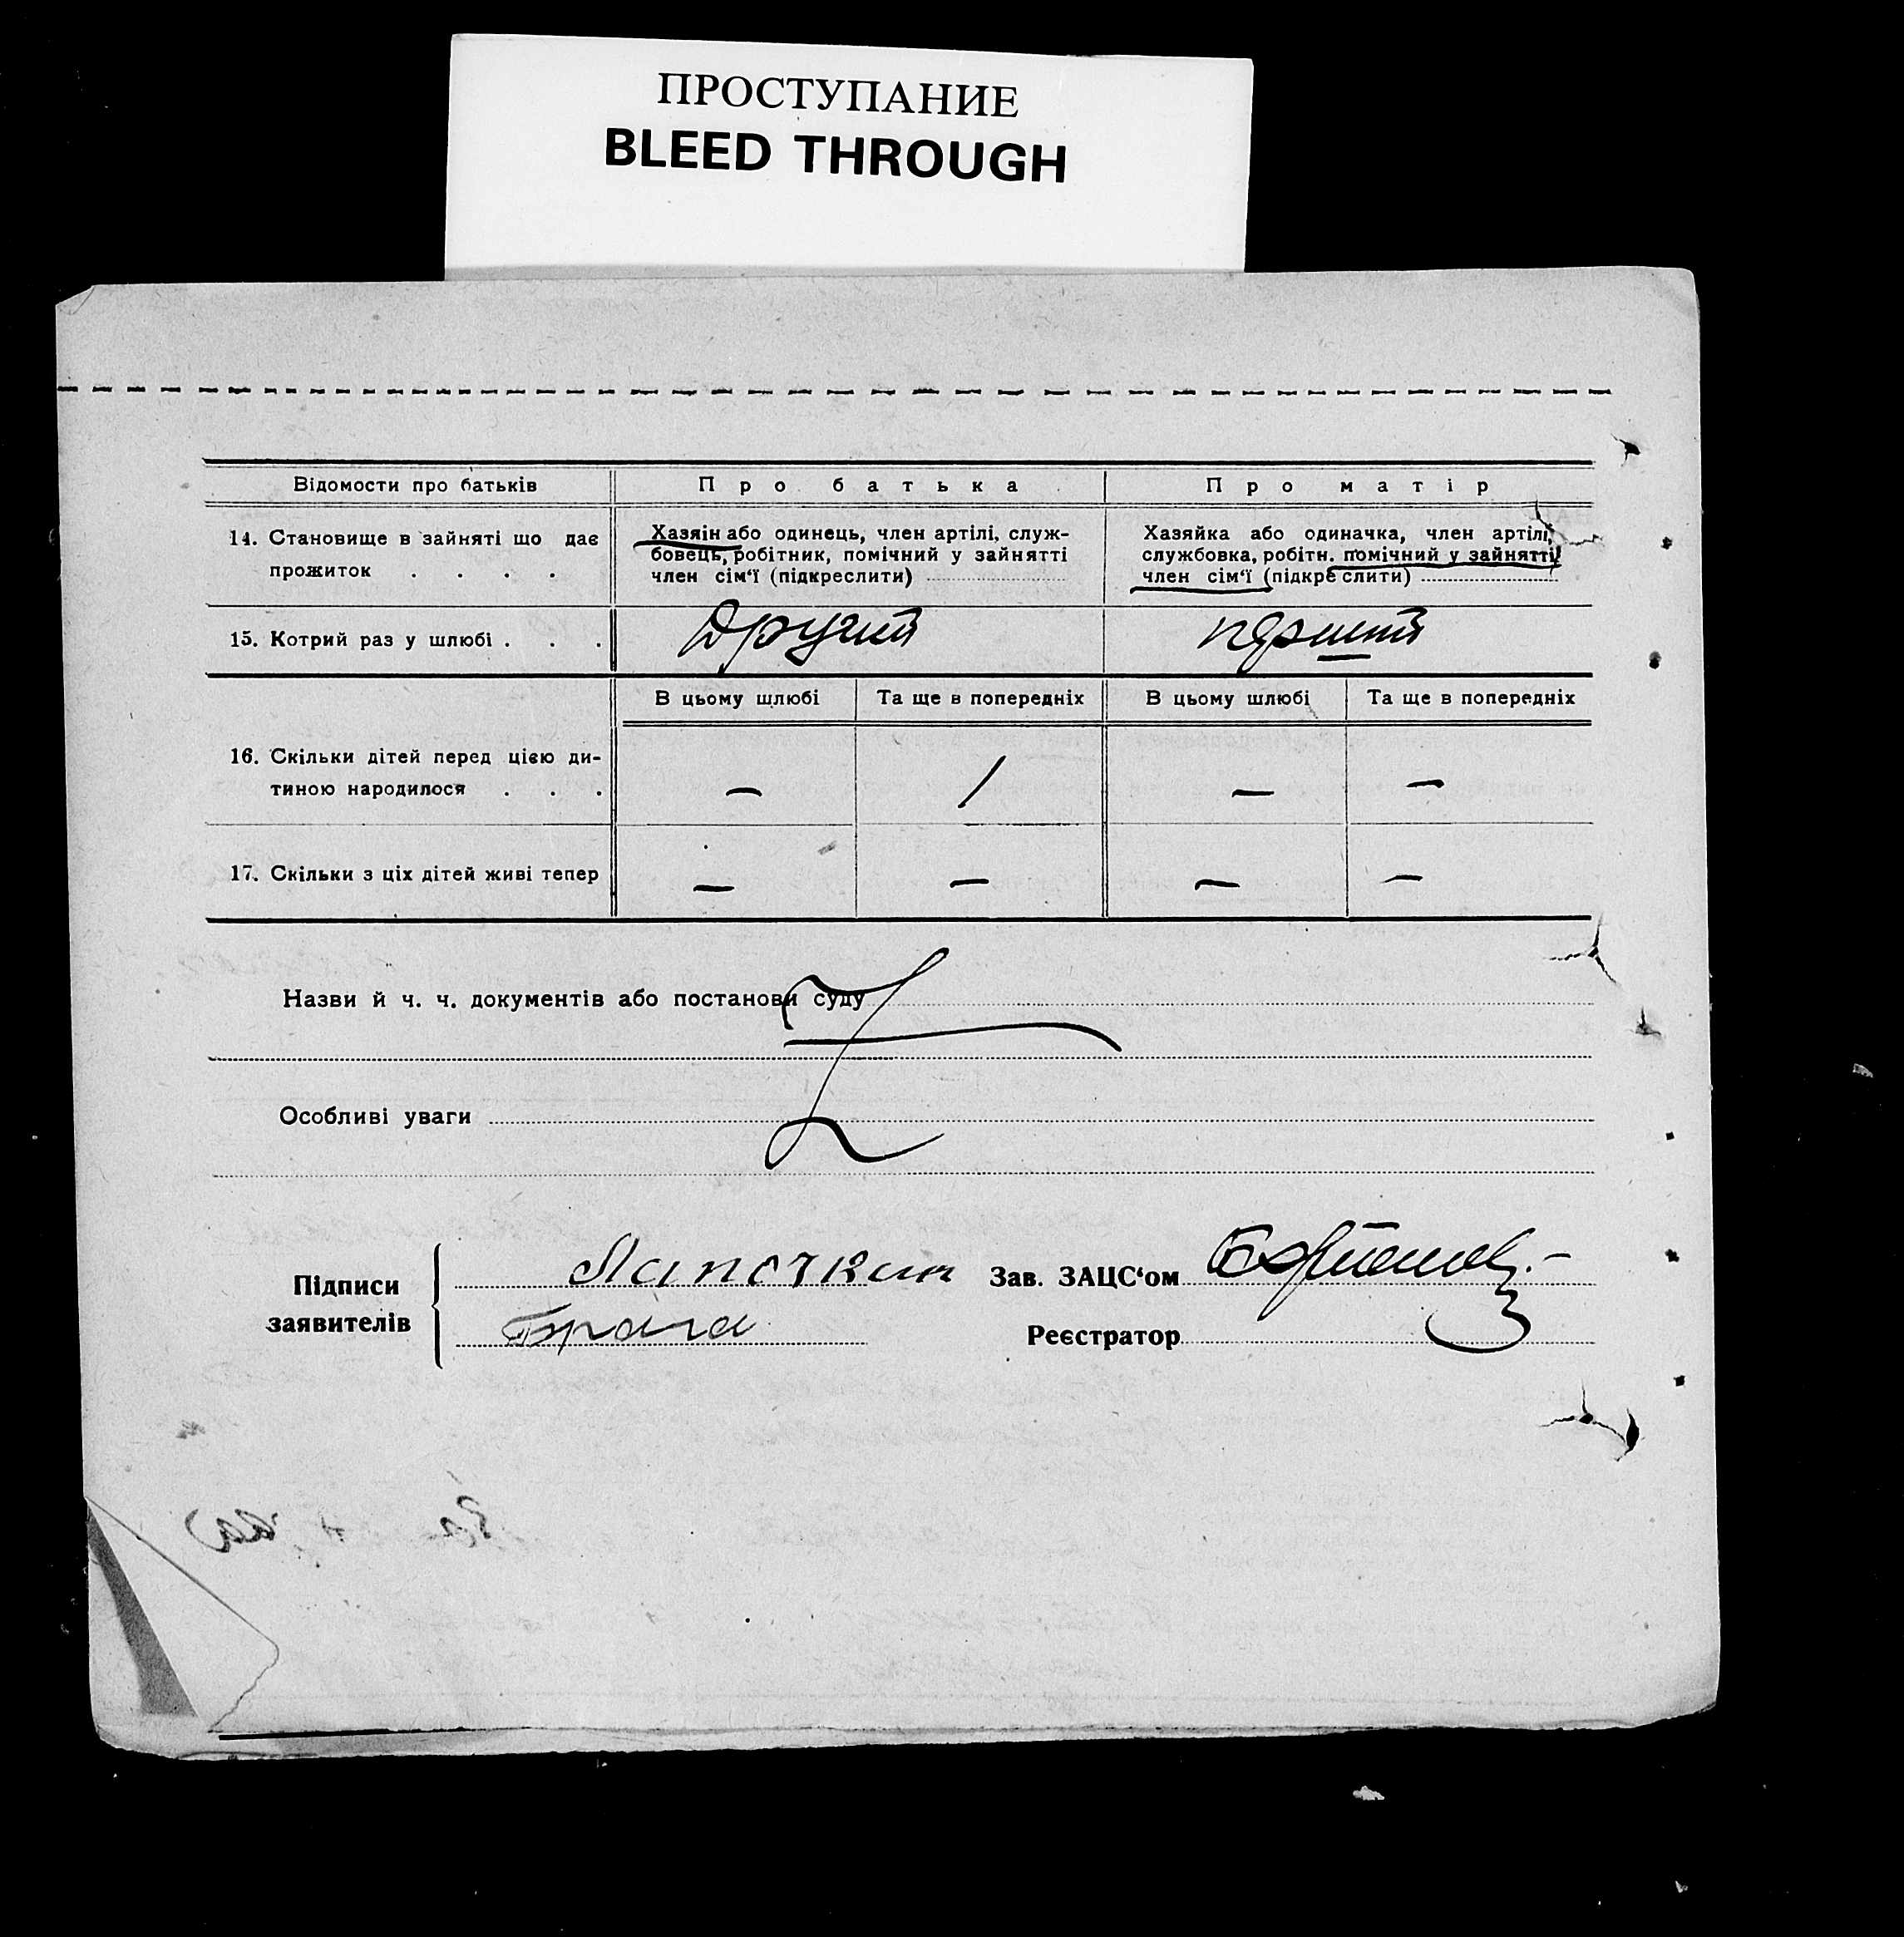 ПРОСТУПАНИЕ
BLEED THROUGH
Відомости про батьків
Про батька
Про матір
14. Становище в зайняті що дає
прожиток . . . .
Хазяін або одинець, член артілі, служ-
бовець, робітник, помічний у зайнятті
член сім‘ї (підкреслити)
Хазяйка або одиначка, член артілі,
службовка, робітн. помічний у зайнятті
член сім‘ї (підкреслити)
15. Котрий раз у шлюбі . . .
Другий
перший
В цьому шлюбі
Та ще в попередніх
В цьому шлюбі
Та ще в попередніх
16. Скільки дітей перед цією ди-
тиною народилося . . .
— / — —
17. Скільки з ціх дітей живі тепер
— — — —
Назви й ч. ч. документів або постанови суду
Особливі уваги
Підписи
заявителів
Лапочкин
Зав. ЗАЦС‘ом
Реєстратор